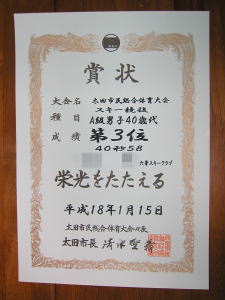 賞状
大会名 太田市民総合体育大会
スキー競技
種目 A級男子40歳代
成績 第3位
40秒58
六合スキークラブ
栄光をたたえる
平成18年1月15日
太田市民総合体育大会々長
太田市長 清水聖義